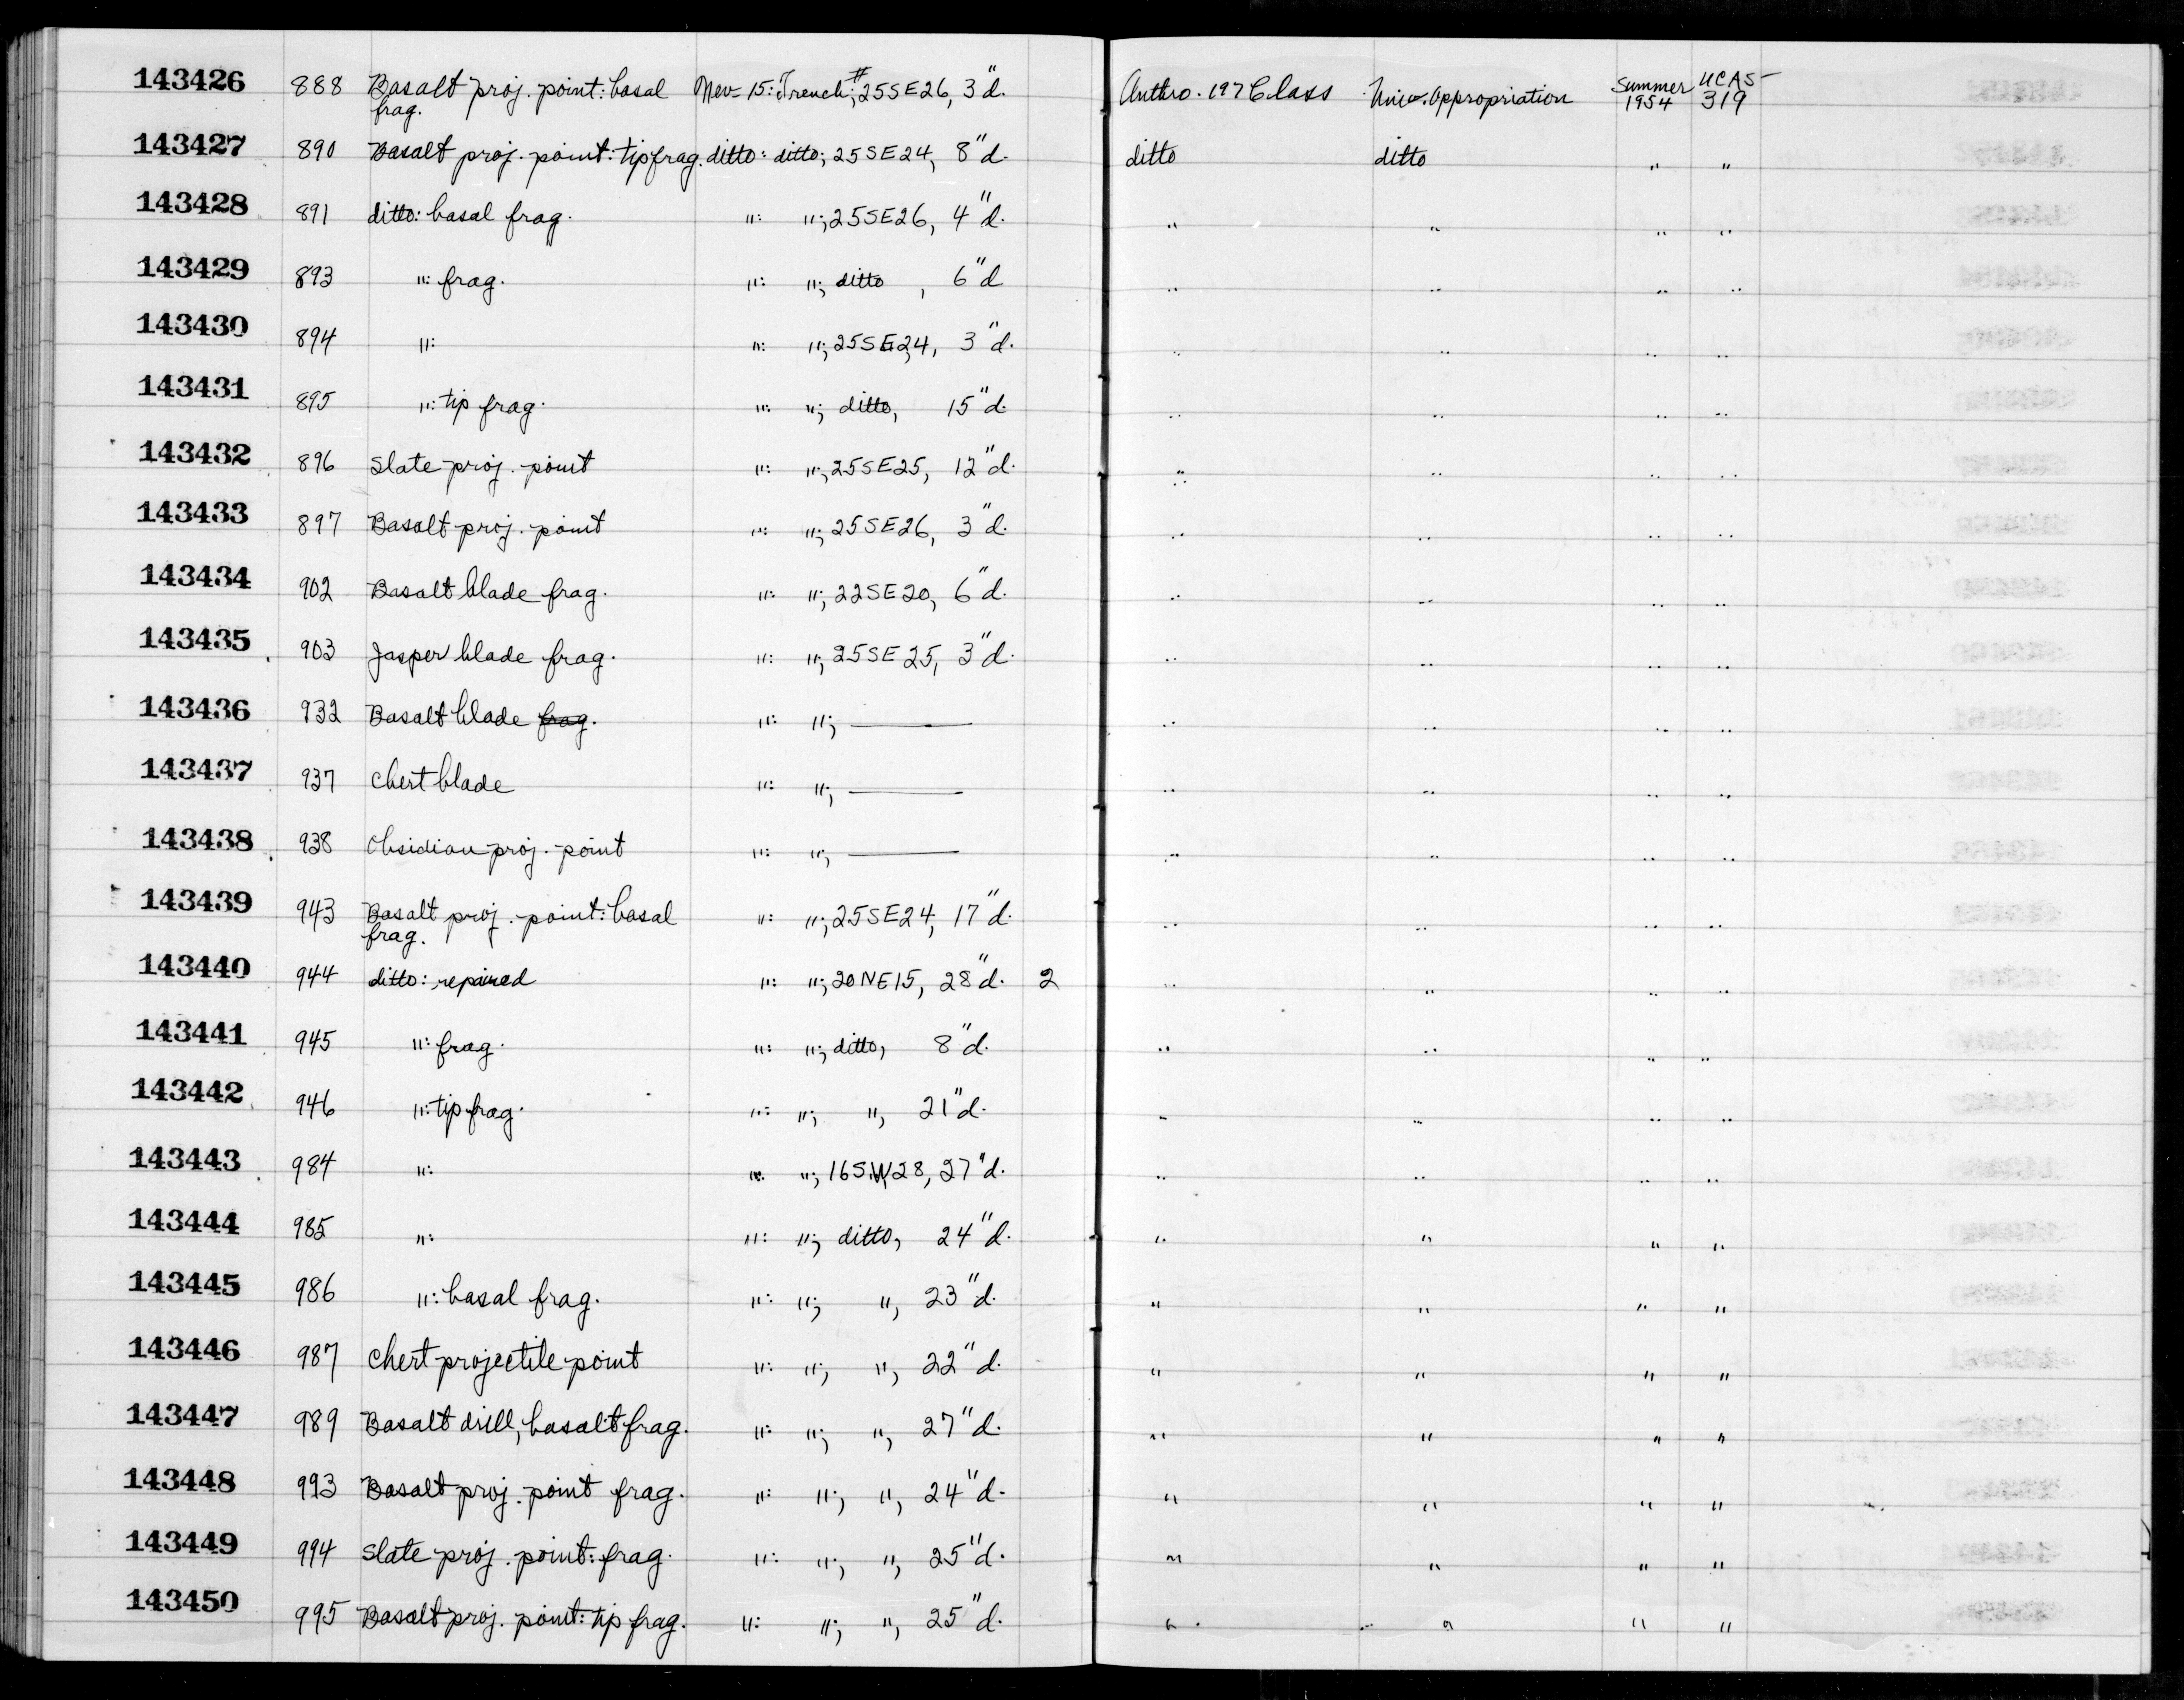 143426 888 Basalt proj. point: basal frag. Nev-15: Trench #; 25SE26, 3"d. Anthro. 197 Class Univ. Appropriation Summer 1954 UCAS-319
143427 890 Basalt proj. point: tip frag. ditto: ditto; 25SE24, 8"d. ditto ditto " "
143428 891 ditto: basal frag. ": "; 25SE26, 4"d. " " " "
143429 893 ": frag. ": "; ditto, 6"d " " " "
143430 894 ": ": "; 25SE24, 3"d. " " " "
143431 895 ": tip frag. ": "; ditto, 15"d. " " " "
143432 896 Slate proj. point ": "; 25SE25, 12"d. " " " "
143433 897 Basalt proj. point ": "; 25SE26, 3"d. " " " "
143434 902 Basalt blade frag. ": "; 22SE20, 6"d. " " " "
143435 903 Jasper blade frag. ": "; 25SE25, 3"d. " " " "
143436 932 Basalt blade frag. ": "; — " " " "
143437 937 Chert blade ": "; — " " " "
143438 938 Obsidian proj. point ": "; — " " " "
143439 943 Basalt proj. point: basal frag. ": "; 25SE24, 17"d. " " " "
143440 944 ditto: repaired ": "; 20NE15, 28"d. 2 " " " "
143441 945 ": frag. ": "; ditto, 8"d. " " " "
143442 946 ": tip frag. ": "; ", 21"d. " " " "
143443 984 ": ": "; 16SW28, 27"d. " " " "
143444 985 ": ": "; ditto, 24"d. " " " "
143445 986 ": basal frag. ": "; ", 23"d. " " " "
143446 987 Chert projectile point ": "; ", 22"d. " " " "
143447 989 Basalt drill, basalt frag. ": "; ", 27"d. " " " "
143448 993 Basalt proj. point frag. ": "; ", 24"d. " " " "
143449 994 Slate proj. point: frag. ": "; ", 25"d. " " " "
143450 995 Basalt proj. point: tip frag. ": "; ", 25"d. " " " "